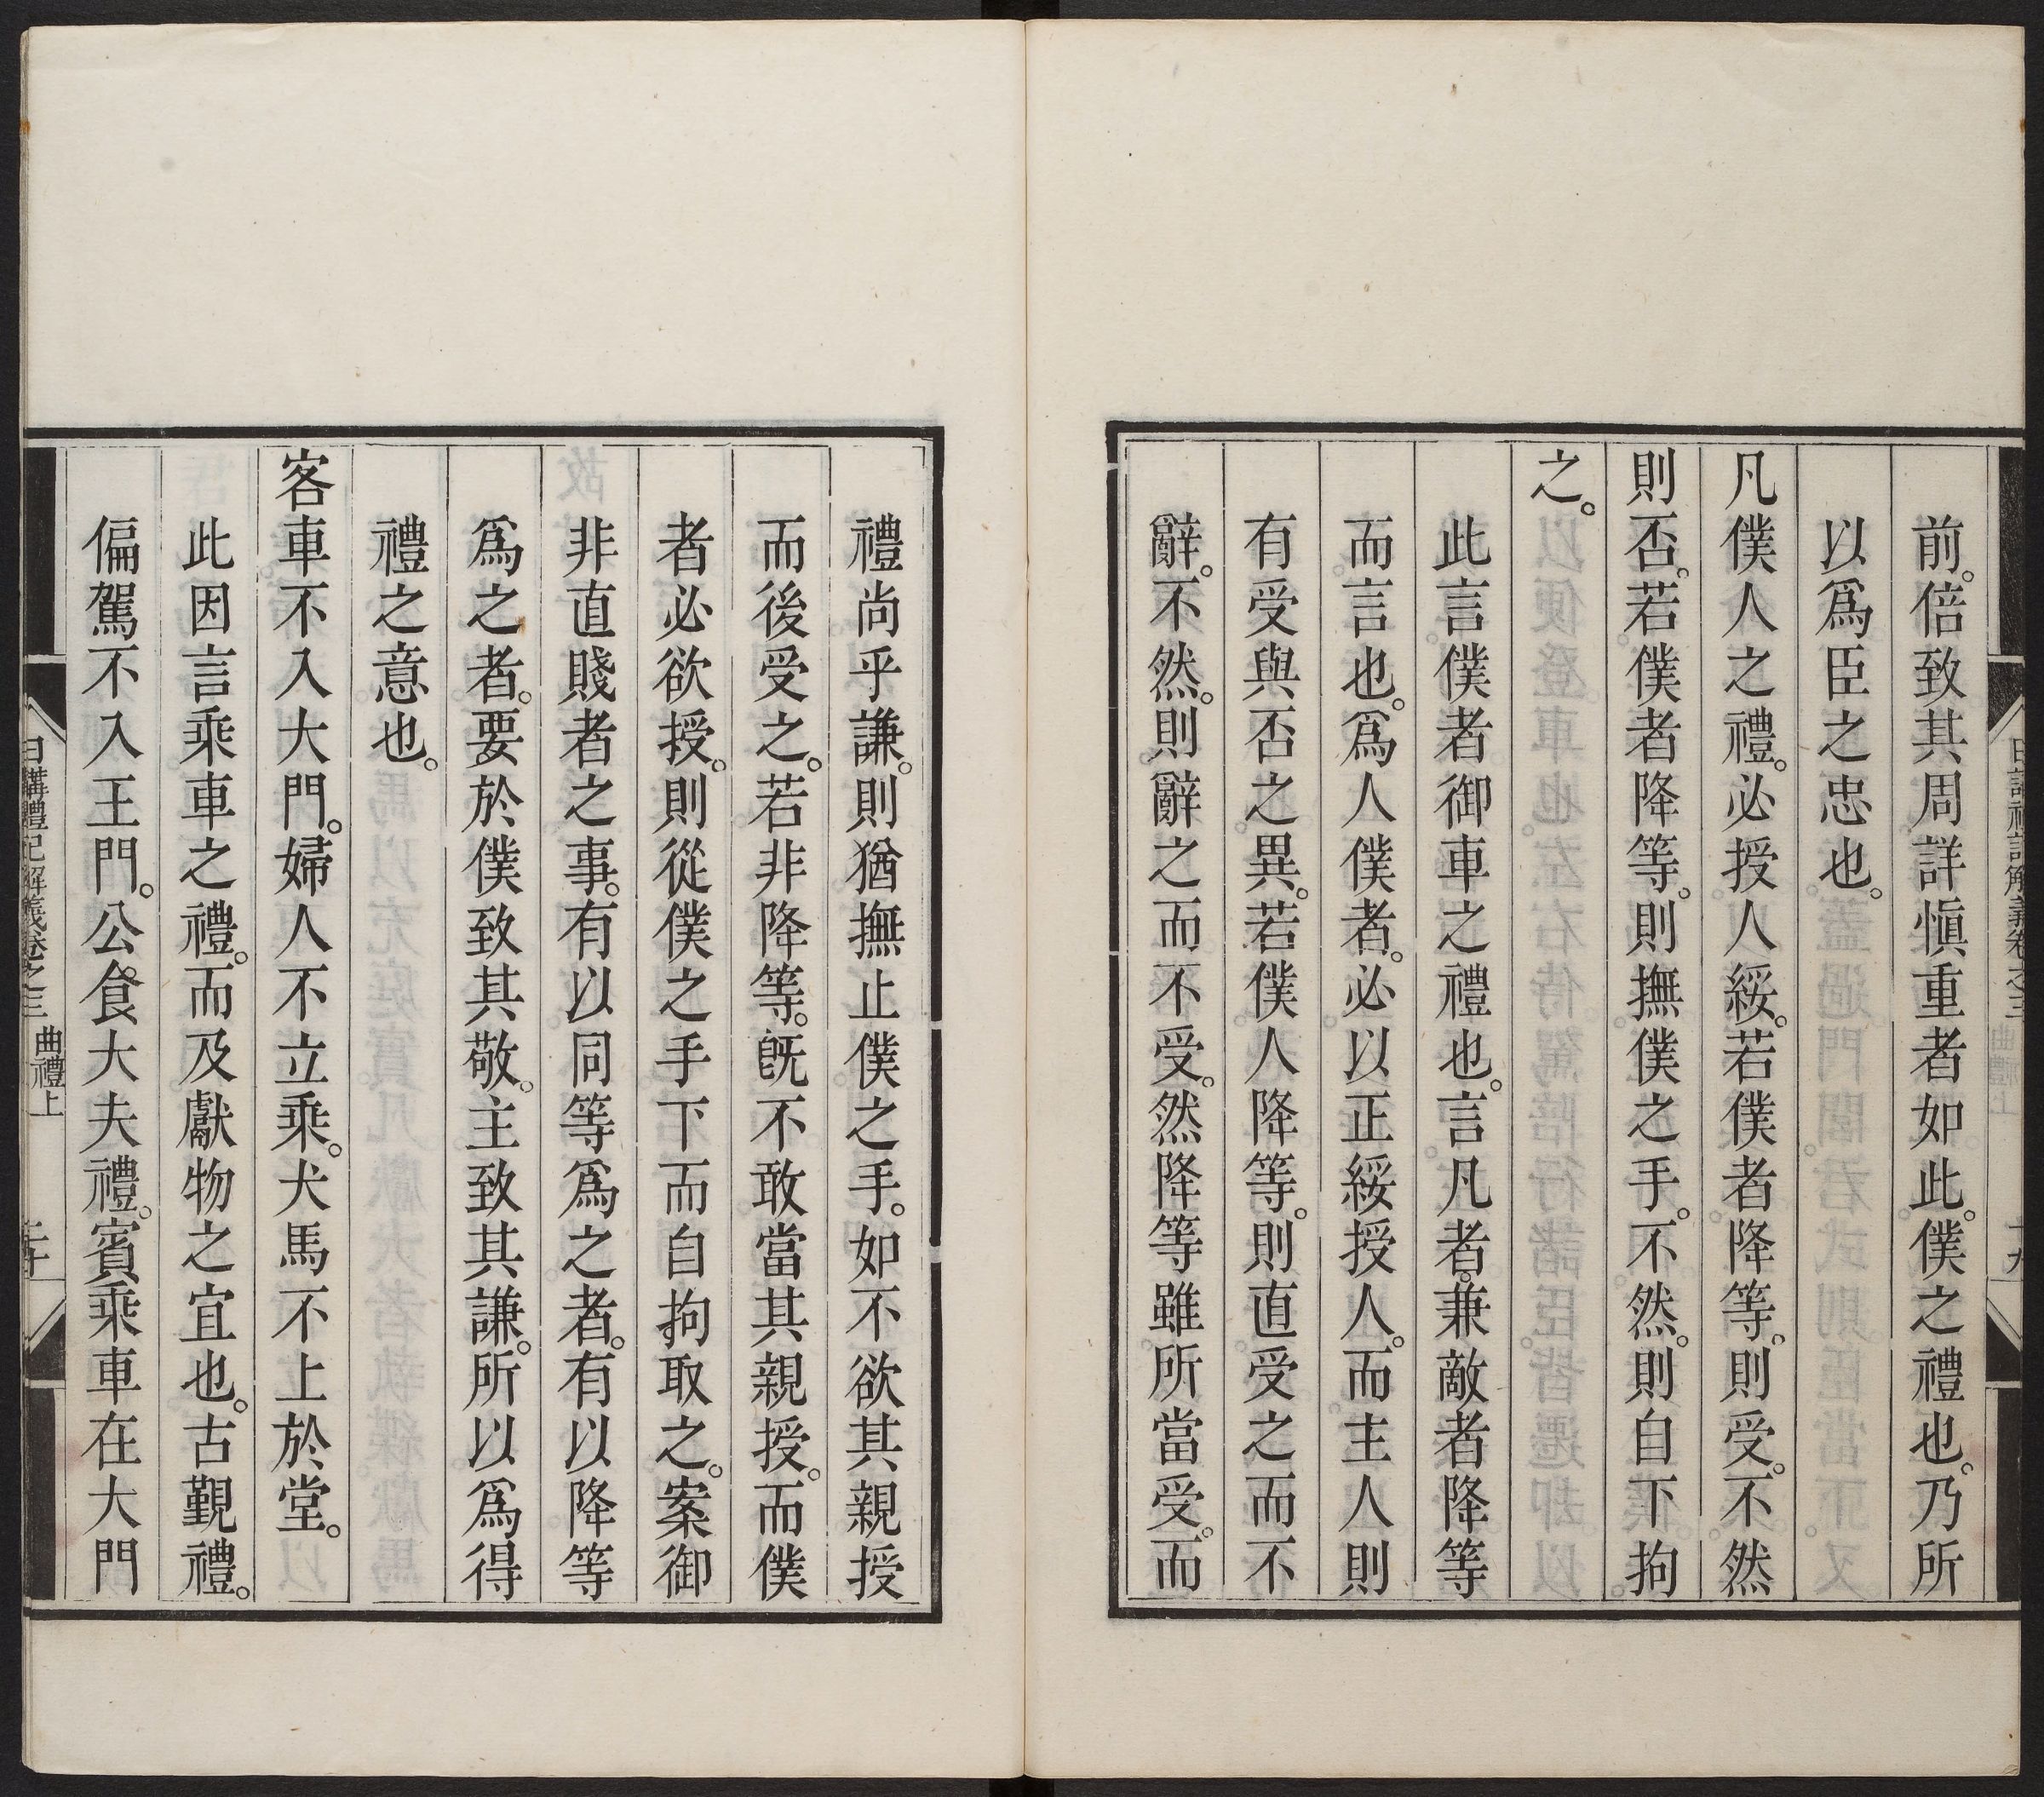 前。倍致其周詳愼重者如此。僕之禮也。乃所
以爲臣之忠也。
凡僕人之禮。必授人綏。若僕者降等。則受。不然
則否。若僕者降等。則撫僕之手。不然。則自下拘
之。
此言僕者御車之禮也。言凡者。兼敵者降等
而言也。爲人僕者。必以正綏授人。而主人則
有受與否之異。若僕人降等。則直受之而不
辭。不然。則辭之而不受。然降等雖所當受。而
禮尚乎謙。則猶撫止僕之手。如不欲其親授
而後受之。若非降等。旣不敢當其親授。而僕
者必欲授。則從僕之手下而自拘取之。案御
非直賤者之事。有以同等爲之者。有以降等
爲之者。要於僕致其敬。主致其謙。所以爲得
禮之意也。
客車不入大門。婦人不立乘。犬馬不上於堂。
此因言乘車之禮。而及獻物之宜也。古覲禮。
偏駕不入王門。公食大夫禮。賓乘車在大門
日講禮記解義卷之三 曲禮上 二十